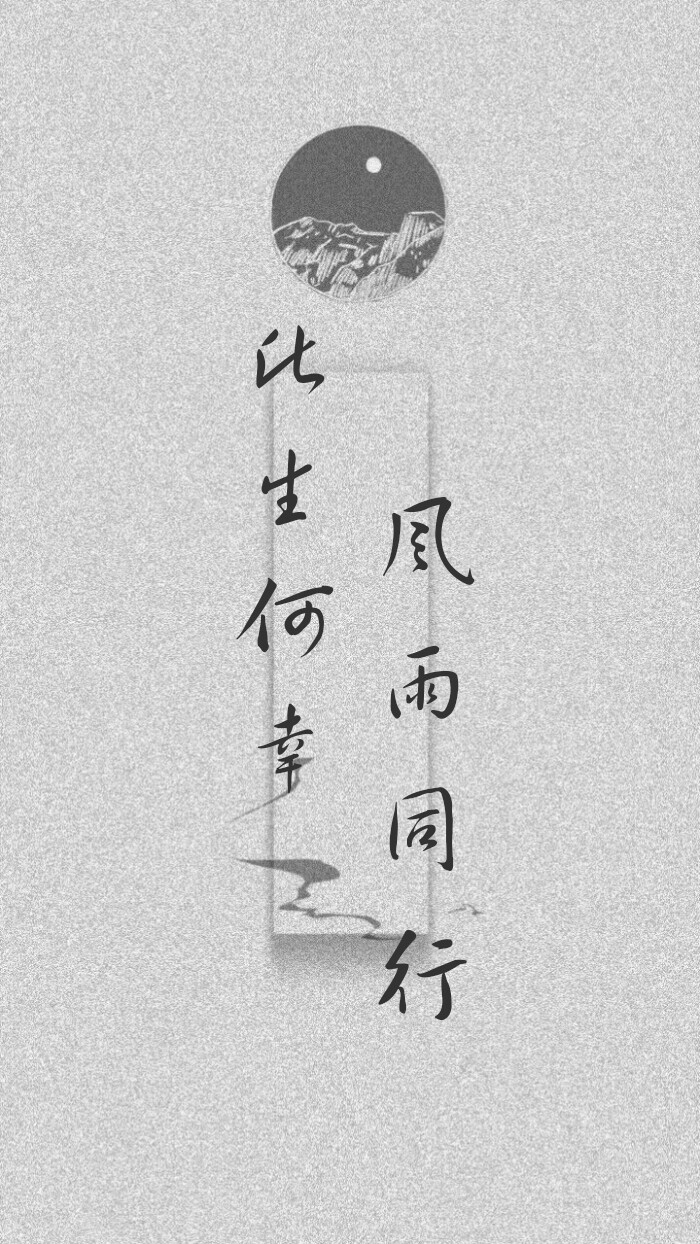 此生何幸
风雨同行